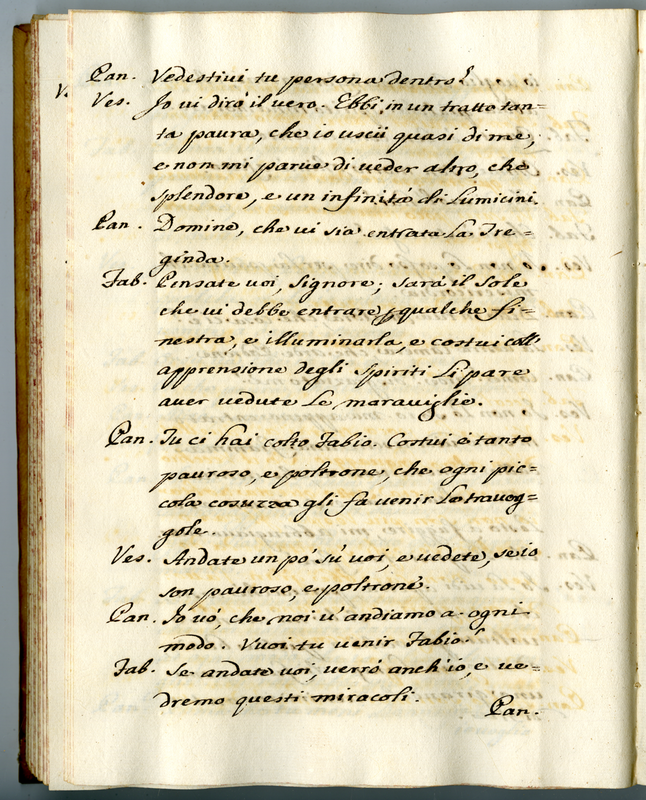 Pan. Vedestivi tu persona dentro?
V. Ves. Io vi dirò il vero. Ebbi in un tratto tan=
ta paura, che io uscii quasi di me,
e non mi parve di veder altro, che
splendore, e un infinità di Lumicini.
Pan. Domine, che vi sia entrata La Tre=
ginda.
Fab. Pensate voi, Signore; sarà il Sole
che vi debbe entrare p qualche fi=
nestra, e illuminarla, e costui coll'
apprensione degli Spiriti Li pare
aver vedute Le maraviglie.
Pan. Tu ci hai colto Fabio. Costui è tanto
pauroso, e poltrone, che ogni pic=
cola cosuzza gli fa venir Le travog=
gole.
Ves. Andate un pò sù voi, e vedete, se io
son pauroso, e poltrone.
Pan. Io vò, che noi v'andiamo a ogni
modo. Vuoi tu venir Fabio?
Fab. Se andate voi, verrò anch'io, e ve=
dremo questi miracoli.
Pan.